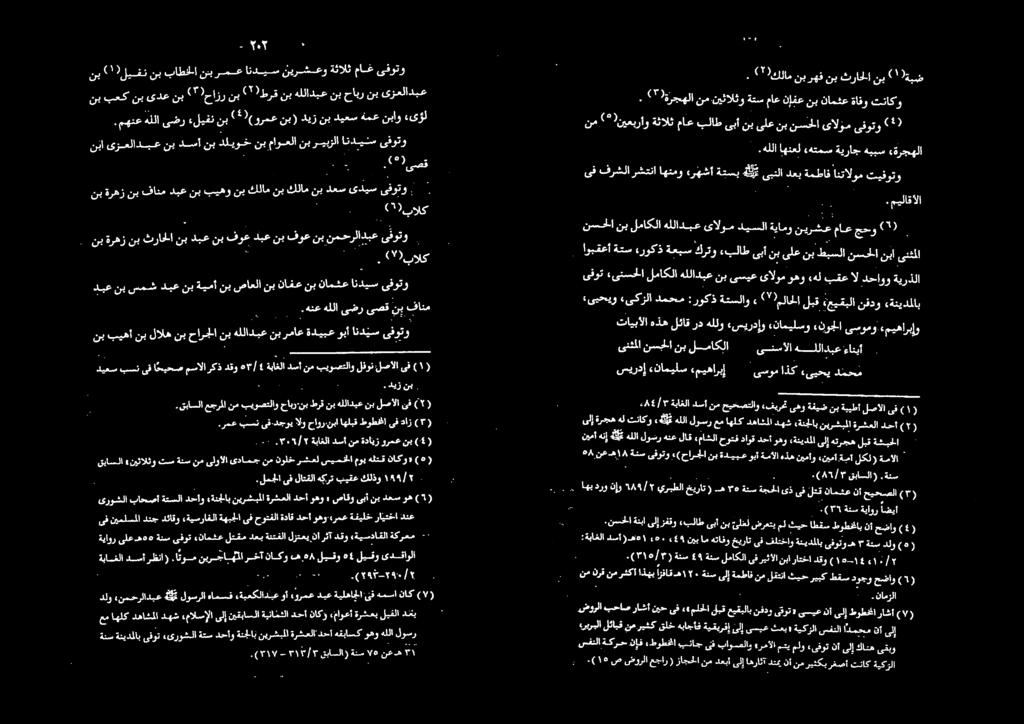 - ٢٠٢
وتوفى عام ثلاثة وعشرين سيدنا عمر بن الخطاب بن نفيل(١) بن
عبدالعزى بن رباح بن عبدالله بن قرط(٢) بن رزاح(٣) بن عدى بن كعب بن
لؤى، وابن عمه سعيد بن زيد (بن عمرو)(٤) بن نفيل، رضى الله عنهم.
وتوفى سيدنا الزبير بن العوام بن خويلد بن أسد بن عبدالعزى ابن
قصى(٥).
وتوفى سيدى سعد بن مالك بن مالك بن وهيب بن عبد مناف بن زهرة بن
كلاب(٦)
وتوفى عبدالرحمن بن عوف بن عبد عوف بن عبد بن الحارث بن زهرة بن
كلاب(٧).
وتوفى سيدنا عثمان بن عفان بن العاص بن أمية بن عبد شمس بن عبد
مناف بن قصى رضى الله عنه.
وتوفى سيدنا أبو عبيدة عامر بن عبدالله بن الجراح بن هلال بن أهيب بن
(١) فى الأصل نوفل والتصويب من أسد الغابة ٥٣/٤ وقد ذكر الاسم صحيحًا فى نسب سعيد
بن زيد.
(٢) فى الأصل بن عبدالله بن قرط بن رباح والتصويب من المرجع السابق.
(٣) زاد فى المخطوط قبلها ابن رواح ولا يوجد فى نسب عمر.
(٤) بن عمرو زيادة من أسد الغابة ٣٠٦/٢.
(٥) «وكان قتله يوم الخميس لعشر خلون من جمادى الأولى من سنة ست وثلاثين» السابق
١٩٩/٢ وذلك عقيب تركه القتال فى الجمل.
(٦) هو سعد بن أبى وقاص «وهو أحد العشرة المبشرين بالجنة، وأحد الستة أصحاب الشورى
عند اختيار خليفة عمر، وهو أحد قادة الفتوح فى الجبهة الفارسية، وقائد جند المسلمين فى
معركة القادسية، وقد آثر أن يعتزل الفتنة بعد مقتل عثمان، توفى سنة ٥٥هـ على رواية
الواقدى وقيل ٥٤ وقيل ٥٨هـ وكان آخر المهاجرين موتًا. (انظر أسد الغابة
٢٩٠/٢-٢٩٣).
(٧) كان اسمه فى الجاهلية عبد عمرو، أو عبدالكعبة، فسماه الرسول ﷺ عبدالرحمن، ولد
بعد الفيل بعشرة أعوام، وكان أحد الثمانية السابقين إلى الإسلام، شهد المشاهد كلها مع
رسول الله وهو كسابقه أحد العشرة المبشرين بالجنة وأحد ستة الشورى، توفى بالمدينة سنة
٣١ هـ عن ٧٥ سنة (السابق ٣١٣/٣ - ٣١٧).
ضبة(١) بن الحارث بن فهر بن مالك(٢).
وكانت وفاة عثمان بن عفان عام ستة وثلاثين من الهجرة(٣).
(٤) وتوفى مولاى الحسن بن على بن أبى طالب عام ثلاثة وأربعين(٥) من
الهجرة، سببه جارية سمته، لعنها الله.
وتوفيت مولاتنا فاطمة بعد النبى ﷺ بستة أشهر، ومنها انتشر الشرف فى
الأقاليم.
(٦) وحج عام عشرين وماية السيد مولاى عبدالله الكامل بن الحسن
المثنى ابن الحسن السبط بن على بن أبى طالب، وترك سبعة ذكور، ستة أعقبوا
الذرية وواحد لا عقب له، وهو مولاى عيسى بن عبدالله الكامل الحسنى، توفى
بالمدينة، ودفن البقيع، قبل الحالم(٧)، والستة ذكور: محمد الزكى، ويحيى،
وإبراهيم، وموسى الجون، وسليمان، وإدريس، ولله در قائل هذه الأبيات
أبناء عبدالله الأسنى الكامل بن الحسن المثنى
محمد يحيى، كذا موسى إبراهيم، سليمان، إدريس
(١) فى الأصل أطيبة بن ضيفة وهى تحريف، والتصحيح من أسد الغابة ٨٤/٣.
(٢) أحد العشرة المبشرين بالجنة، شهد المشاهد كلها مع رسول الله ﷺ، وكانت له هجرة إلى
الحبشة قبل هجرته إلى المدينة، وهو أحد قواد فتوح الشام، قال عنه رسول الله ﷺ إنه أمين
الأمة (لكل أمة أمين، وأمين هذه الأمة أبو عبيدة بن الجراح)، وتوفى سنة ١٨هـ عن ٥٨
سنة. (السابق ٨٦/٣).
(٣) الصحيح أن عثمان قتل فى ذى الحجة سنة ٣٥ هـ. (تاريخ الطبري ٦٨٩/٢ وإن ورد بها
أيضاً رواية سنة ٣٦).
(٤) واضح أن بالمخطوط سقطا حيث لم يتعرض لعلىّ بن أبى طالب، وقفز إلى ابنة الحسن.
(٥) ولد سنة ٣ هـ وتوفى بالمدينة واختلف فى تاريخ وفاته ما بين ٤٩، ٥٠، ٥١هـ (أسد الغابة:
١٠/٢، ١٤-١٥) وقد اختار ابن الأثير فى الكامل سنة ٤٩ سنة (٣١٥/٣).
(٦) واضح وجود سقط كبير حيث انتقل من فاطمة إلى سنة ١٢٠هـ قافزاً بهذا أكثر من قرن من
الزمان.
(٧) أشار المخطوط إلى أن عيسى «توفى ودفن بالبقيع قبل الحلم»، فى حين أشار صاحب الروض
إلى أن محمداً النفس الزكية «بعث عيسى إلى إفريقية فأجابه خلق كثير من قبائل البربر،
وبقى هناك إلى أن توفى، ولم يتم الأمر» والصواب فى جانب المخطوط، فإن حركة النفس
الزكية كانت أصغر بكثير من أن يمتد آثارها إلى أبعد من الحجاز (راجع الروض ص ١٥).